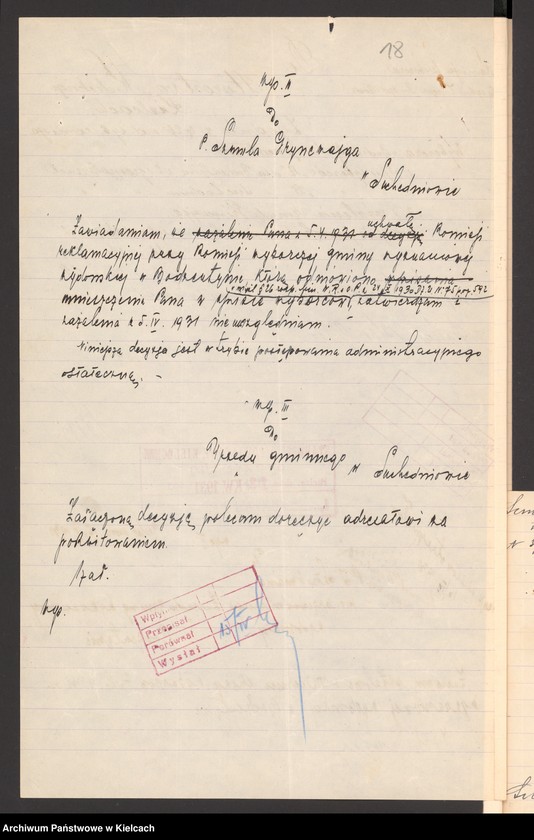 18
wyp. II
Do
P. Szmula Gryncwajga
w Suchedniowie
uchwałę
Zawiadamiam, że zażalenia Pana z 5.IV.1931 od decyzji Komisji
reklamacyjnej przy Komisji wyborczej gminy wyznaniowej
żydowskiej w Bodzentynie, którą odmówiono
umieszczenia Pana w spisie wyborców, zatwierdzam i
zażalenia z 5. IV. 1931 nie uwzględniam. -
Niniejsza decyzja jest w trybie postępowania administracyjnego
ostateczną. -
wyp. III
Do
Urzędu gminnego w Suchedniowie
Załączoną decyzję polecam doręczyć adresatowi za
pokwitowaniem.
1 zał.
wyp.
Wpłyn
Przepisał
Porównał
Wysłał
Archiwum Państwowe w Kielcach